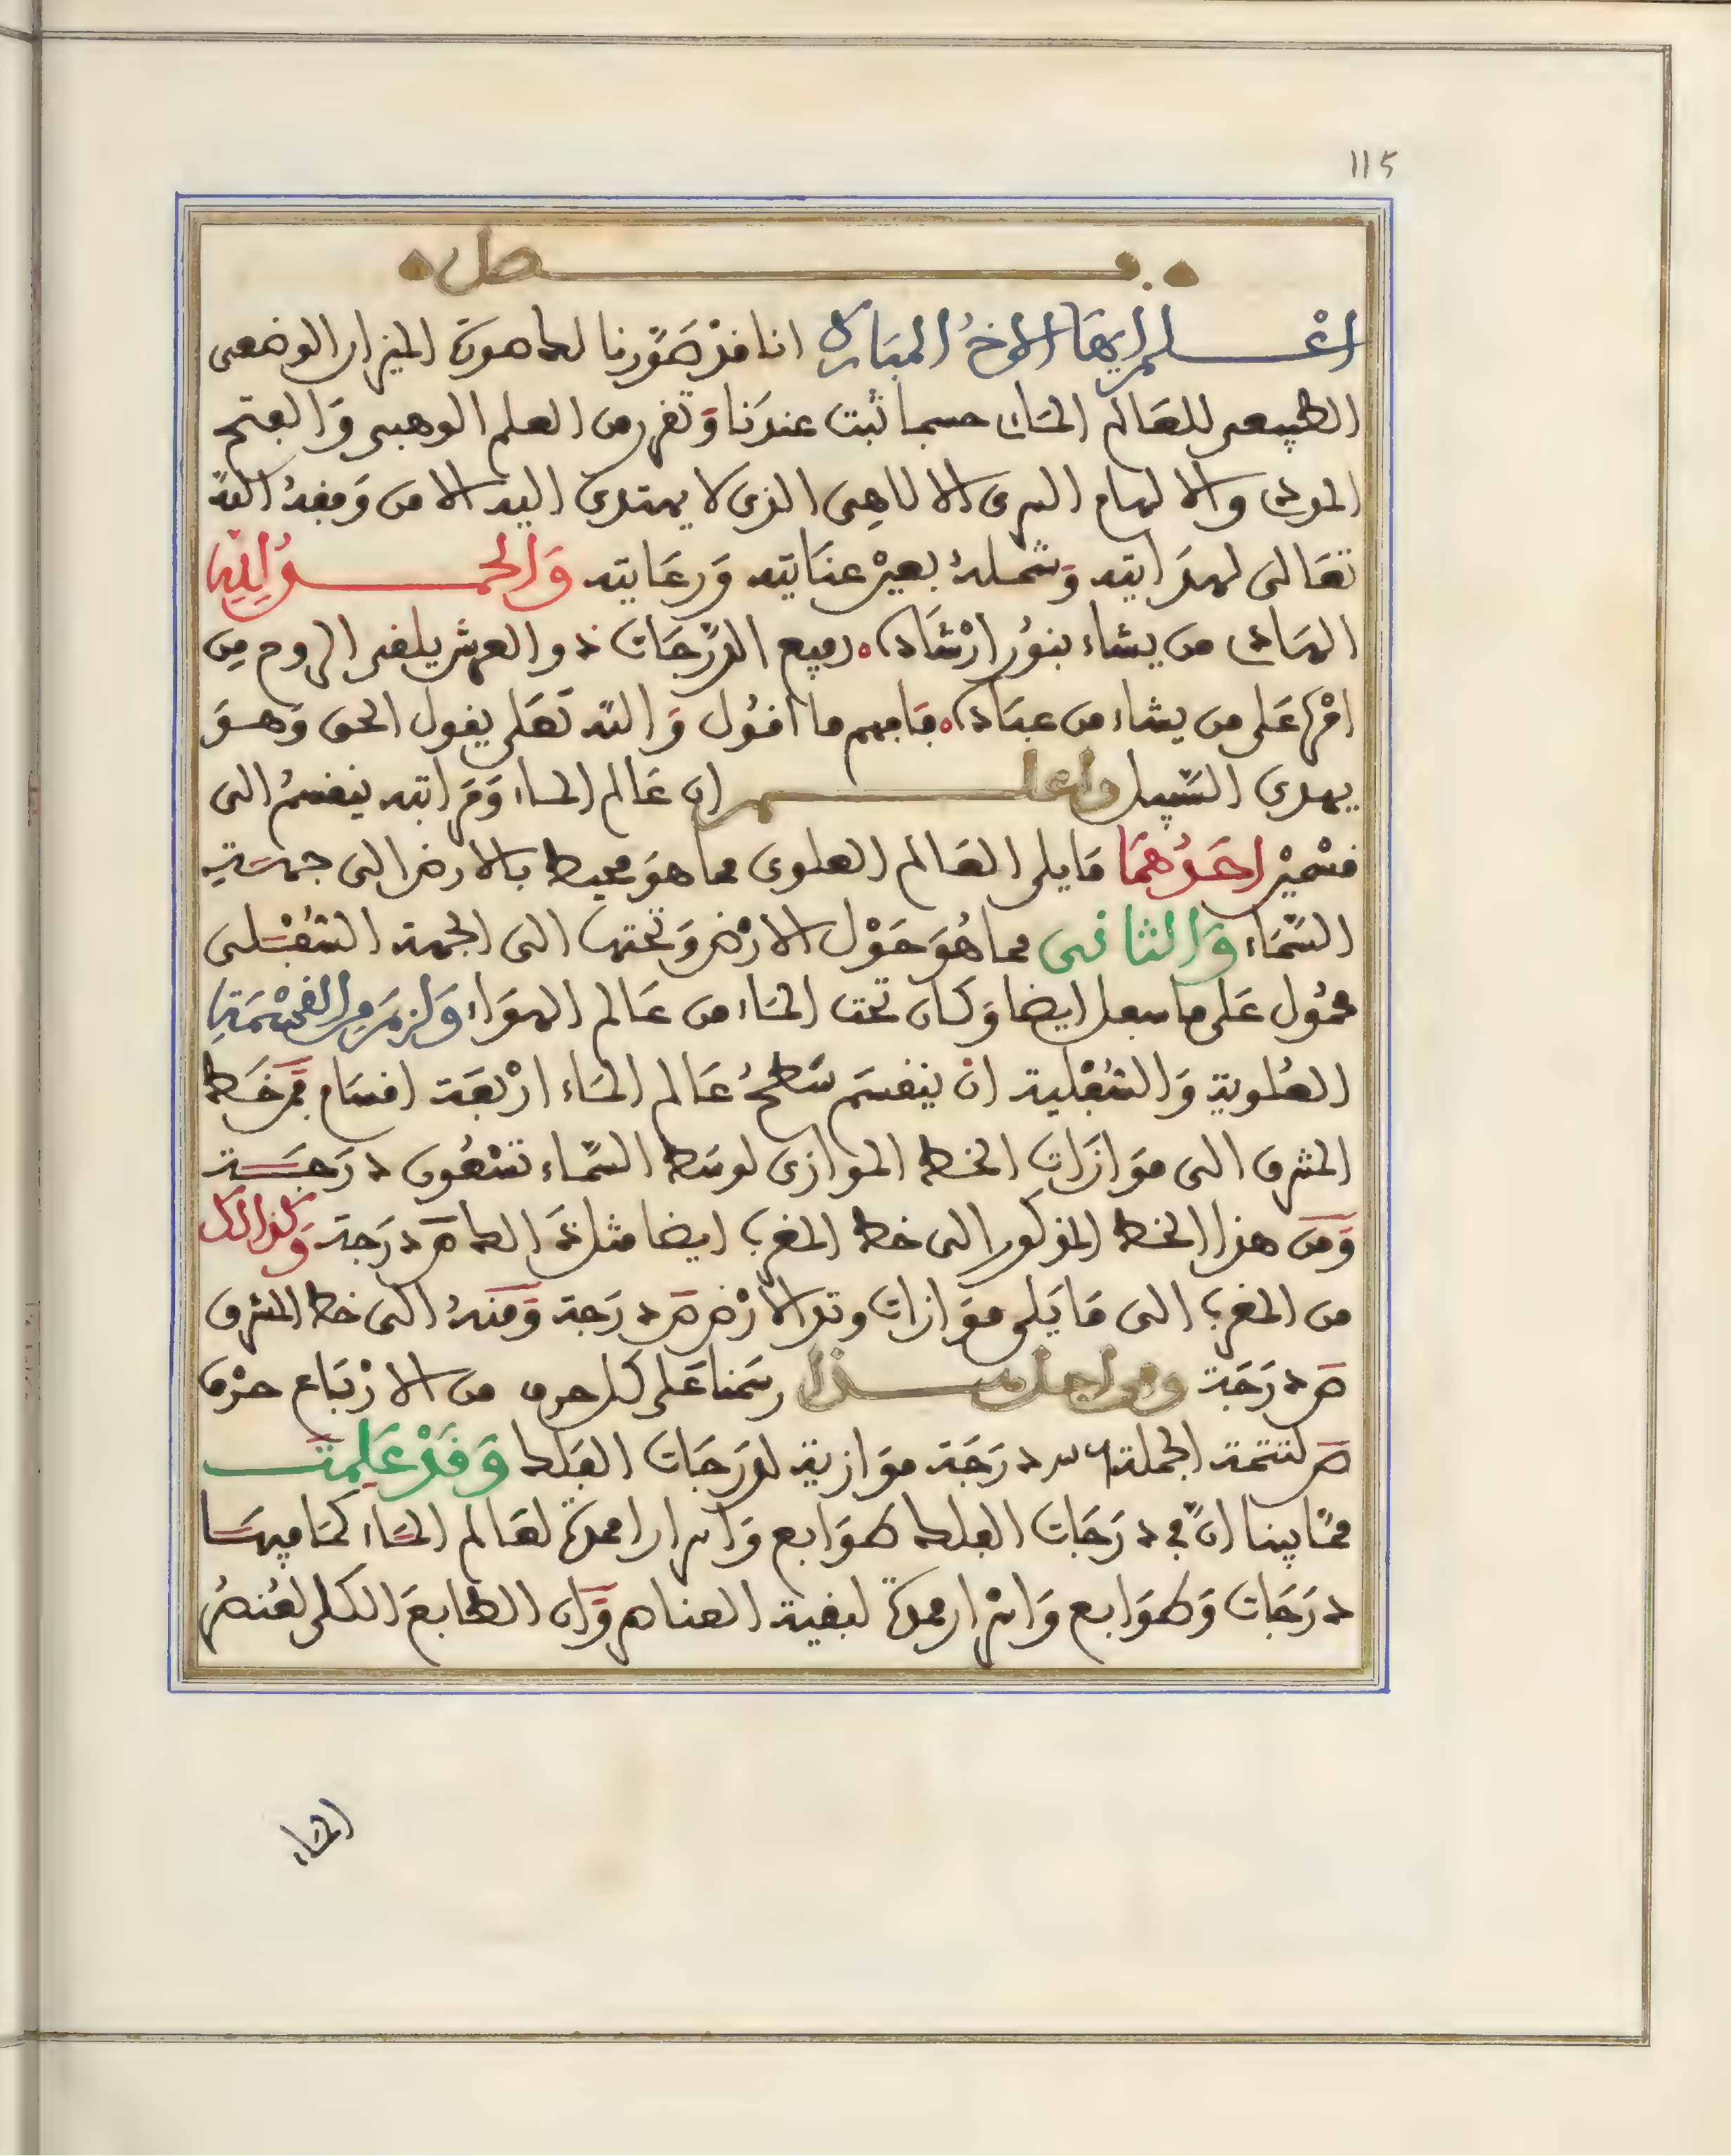 115
فصل
اعلم ايها الاخ المبارك انا قد صورنا لك صورة الميزان الوضعي
الطبيعي للعالم المائي حسبما ثبت عندنا وتقرر من العلم الوهبي والفتح
الموتى والالهام السرى الالاهي الذي لا يهتدى اليه الا من وفقه الله
تعالى لهدايته وشمله بعين عنايته ورعايته والحمد لله
الهادى من يشاء بنور ارشاده رفيع الدرجات ذو العرش يلقى الروح من
امره على من يشاء من عباده فافهم ما اقول والله تعلى يقول الحق وهو
يهدى السبيل واعلم ان عالم الماء ومراتبه ينقسم الى
قسمين احدهما ما يلى العالم العلوى مما هو محيط بالارض الى جهته
السماء والثاني مما هو حول الارض وتحتها الى الجهة السفلى
محمول على ما سفل ايضا وكان تحت الماء من عالم الهواء ولزم من القسمة
العلوية والسفلية ان ينقسم سطح عالم الماء اربعة اقسام فمن خط
المشرق الى موازات الخط الموازى لوسط السماء تسعون درجة
ومن هذا الخط المذكور الى خط المغرب ايضا مثل ذالك ص درجة وكذالك
من المغرب الى ما يلى موازات وتد الارض ص درجة ومنه الى خط المشرق
ص درجة ومن اجل هذا رسمنا على كل حرف من الارباع حرف
ص لتتمة الجملة درجة موازية لدرجات الفلك وقد علمت
مما بينا ان في درجات الفلك طوابع واسرارا ممدة لعالم الماء كما فيها
درجات وطوابع واسرار ممدة لبقية العناصر وان الطابع الكلى لعنصر
الماء